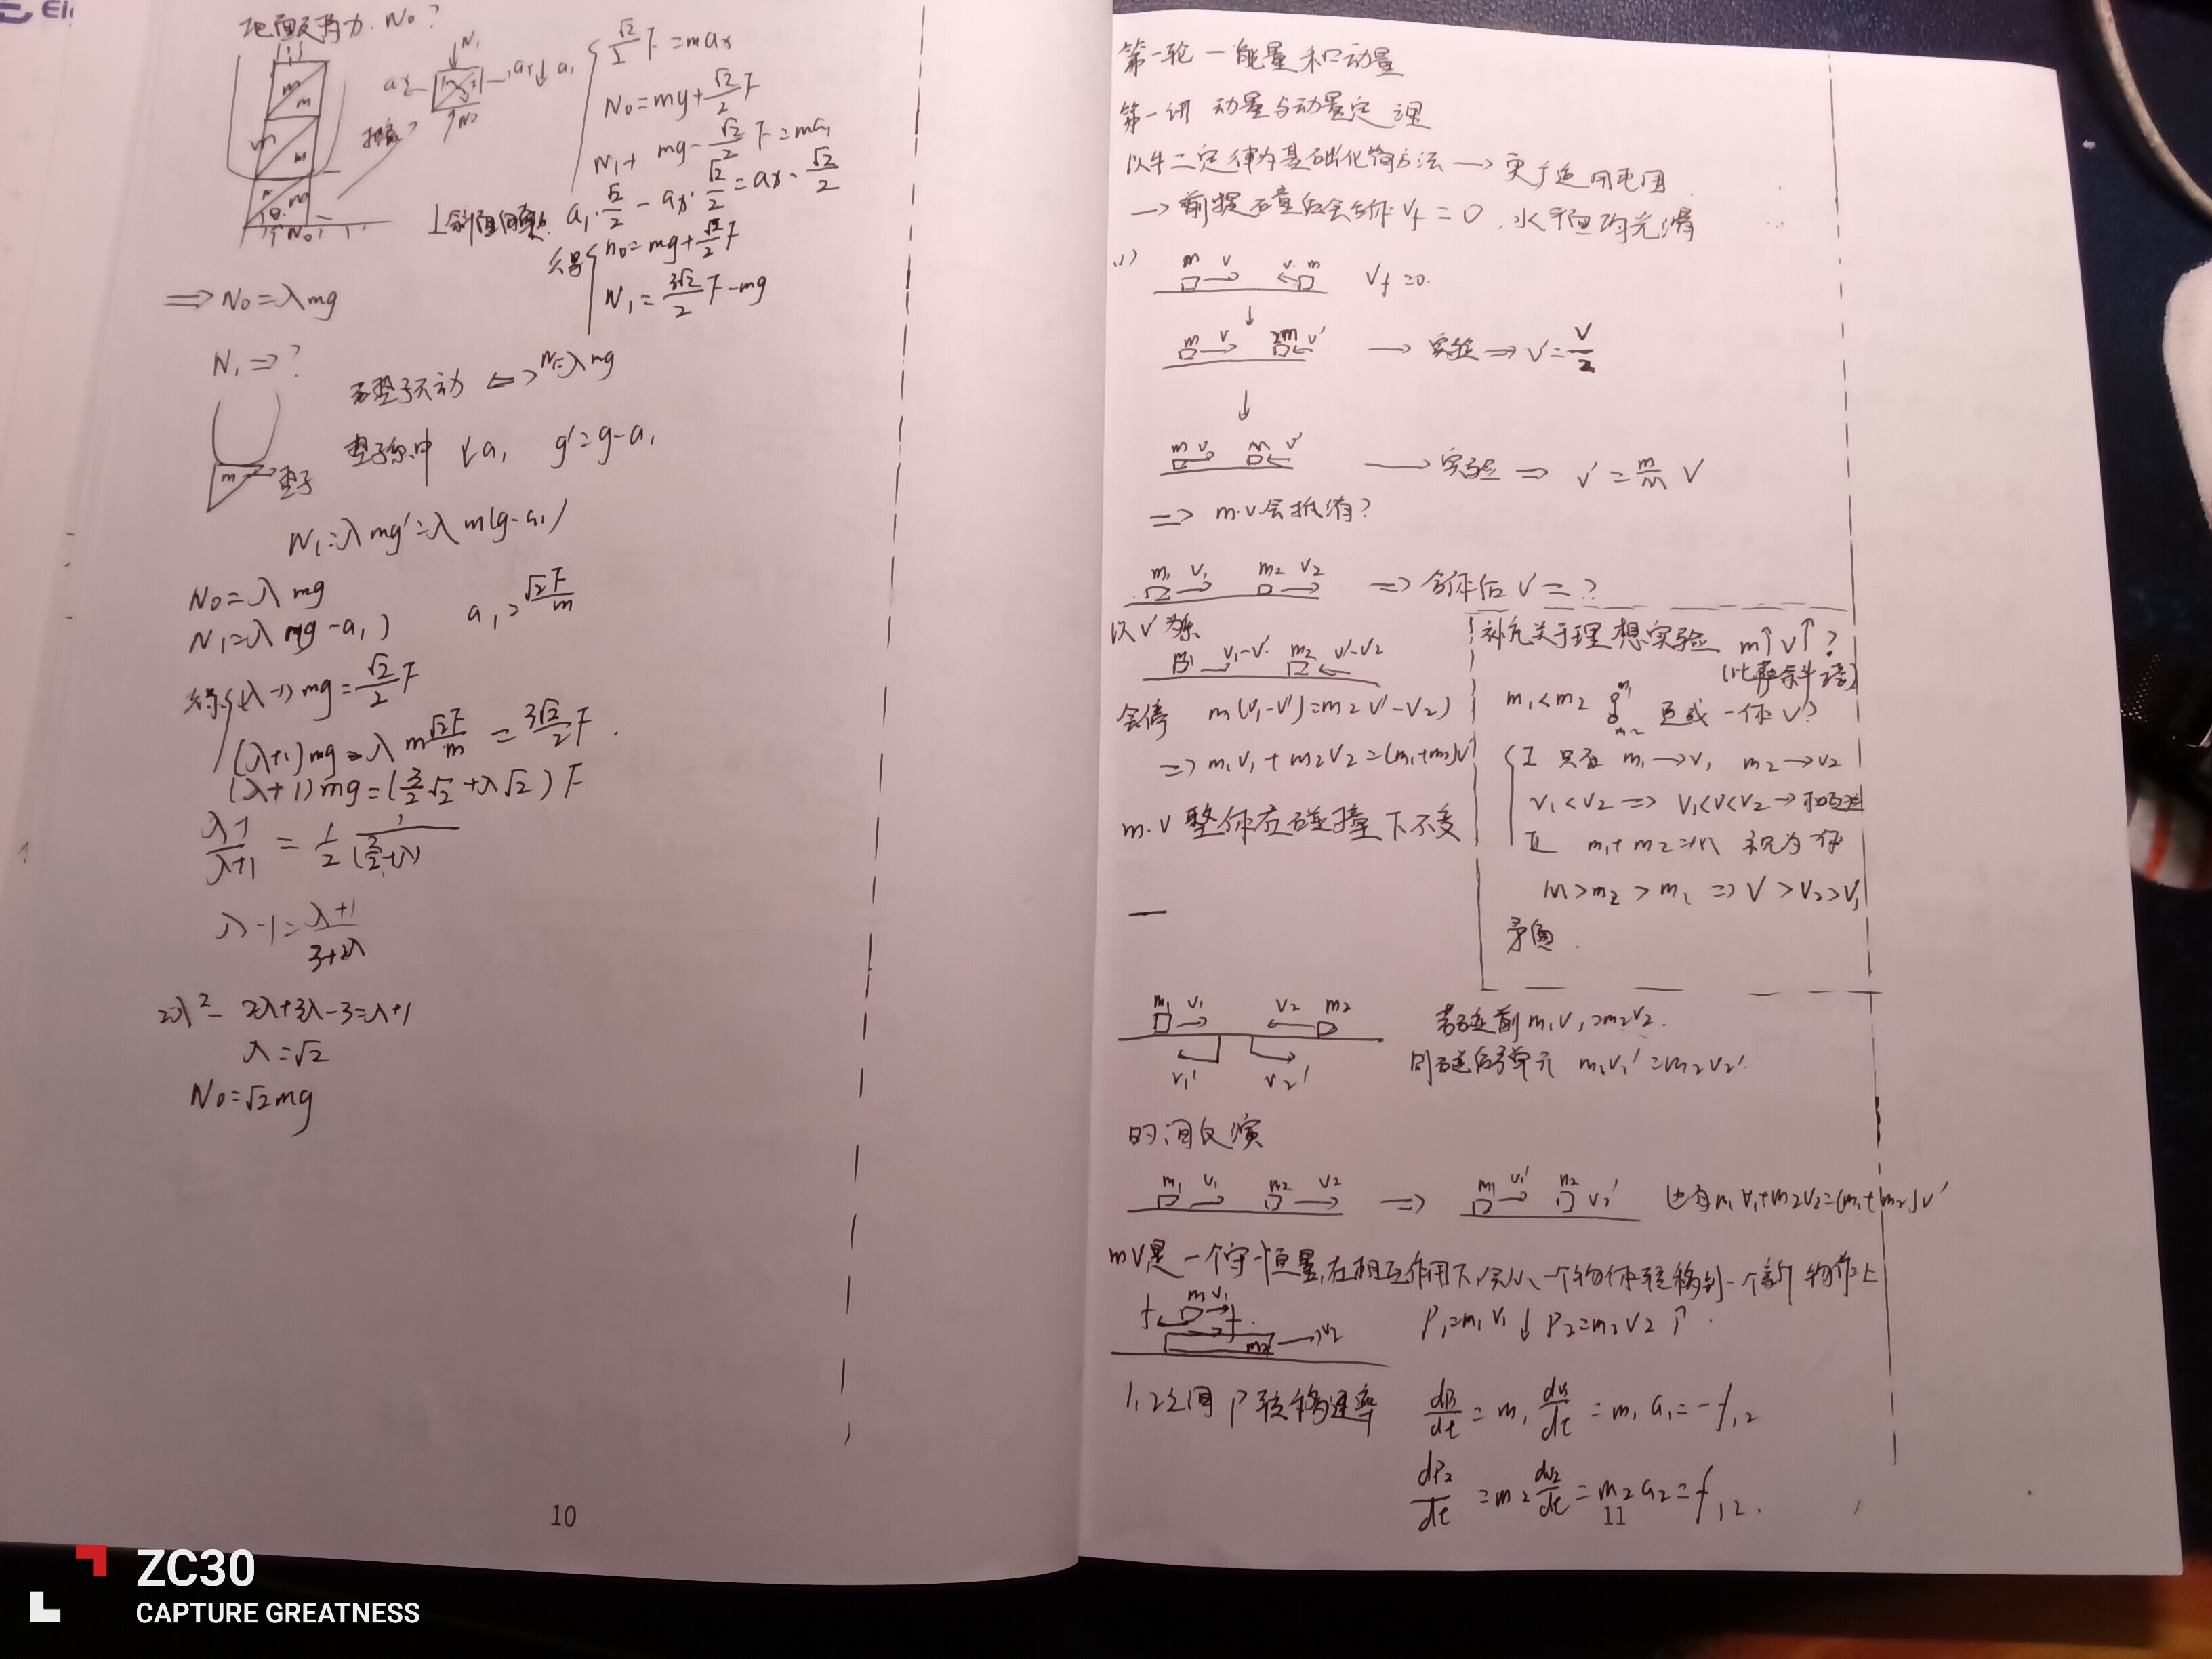 Ei
地面支持力. N₀?
N₁
a₁
√2/2 F = max
N₀ = mg + √2/2 F
N₁ + mg - √2/2 F = ma₁
a₁·√2/2 - ax·√2/2 = ax·√2/2
N₀ = mg + √2/2 F
N₁ = 3√2/2 F - mg
⇒ N₀ = λmg
N₁ ⇒ ?
若垫子不动 ⇔ N=λmg
垫子系中 ↓a₁ g' = g-a₁
垫子
N₁ = λmg' = λm(g-a₁)
N₀ = λmg
N₁ = λm(g-a₁)
a₁ = √2F/m
(λ-1)mg = √2/2 F
(λ+1)mg = (3/2 √2 + λ√2) F
λ-1/λ+1 = 1/2 1/(3/2+λ)
λ-1 = λ+1/3+2λ
2λ² - 2λ+3λ-3=λ+1
λ = √2
N₀ = √2mg
10
第一轮 — 能量和动量
第一讲 动量与动量定理
以牛二定律为基础化简方法 → 更广适用范围
→ 前提 碰后会合体 Vf = 0 . 水平面均光滑
(1) m v v m Vf = 0.
m v 2m v' → 实验 ⇒ v' = v/2
m v M v' → 实验 ⇒ v' = m/M V
⇒ m·v会抵消?
m₁ v₁ m₂ v₂ ⇒ 合体后 v' = ?
以v'为系
m₁ v₁-v' m₂ v'-v₂
会停 m₁(v₁-v')=m₂(v'-v₂)
⇒ m₁v₁ + m₂v₂ = (m₁+m₂)v'
m·v 整体在碰撞下不变
补充关于理想实验 m↑ v↑ ?
(比萨斜塔)
m₁<m₂ m₁ m₂ 连成一体 v?
I 只看 m₁→v₁ m₂→v₂
v₁<v₂ ⇒ v₁<v<v₂
II m₁+m₂=M 视为一体
M>m₂>m₁ ⇒ V>v₂>v₁
矛盾.
m₁ v₁ v₂ m₂
v₁' v₂'
若碰前 m₁v₁=m₂v₂.
则碰后 m₁v₁'=m₂v₂'.
时间反演
m₁ v₁ m₂ v₂ ⇒ m₁ v₁' m₂ v₂' 也有m₁v₁+m₂v₂=(m₁+m₂)v'
mv是一个守恒量,在相互作用下,会从一个物体转移到一个新物体上
f m v₁ f
m₂ v₂
P₁=m₁v₁↓ P₂=m₂v₂↑.
1,2之间P转移速率 dP₁/dt = m₁ dv₁/dt = m₁a₁ = -f₁₂
dP₂/dt = m₂ dv₂/dt = m₂a₂ = f₁₂.
11
ZC30
CAPTURE GREATNESS